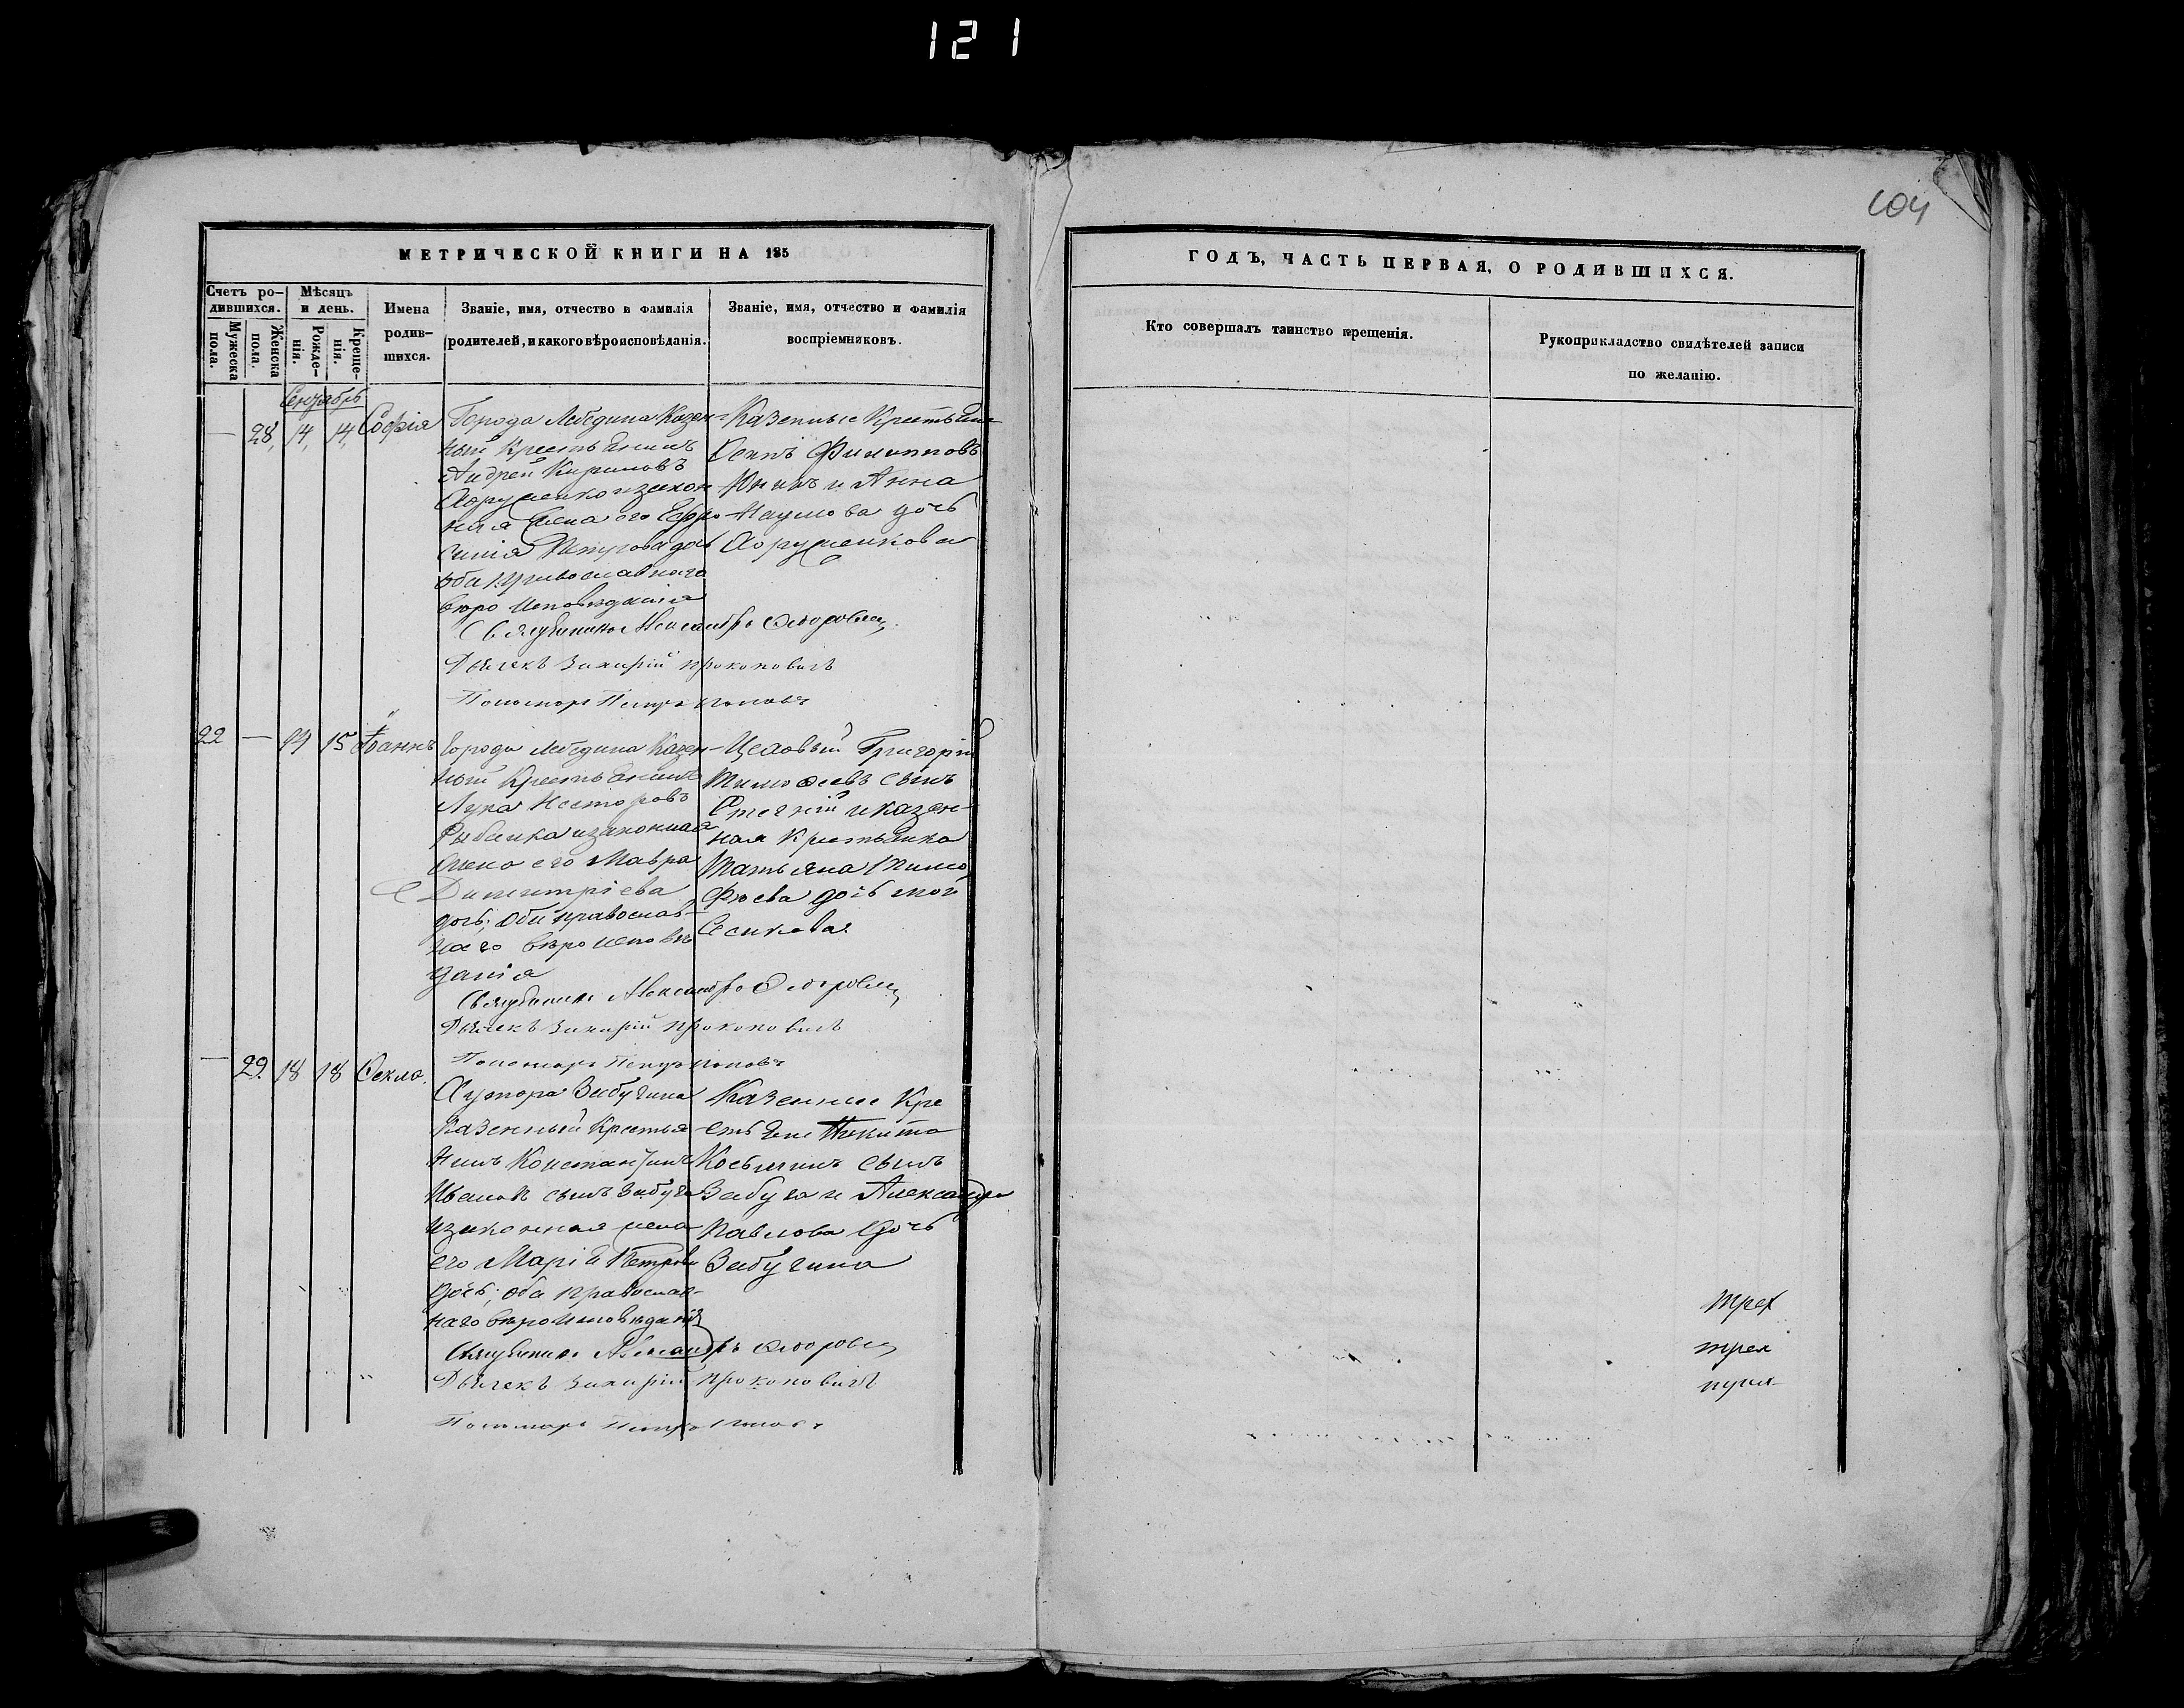 121
104
МЕТРИЧЕСКОЙ КНИГИ НА 185
ГОДЪ, ЧАСТЬ ПЕРВАЯ, О РОДИВШИХСЯ.
Счетъ ро-
дившихся.
Мужеска
пола.
Женска
пола.
Мѣсяцъ
и день.
Рожде-
нія.
Креще-
нія.
Имена
родив-
шихся.
Званіе, имя, отчество и фамилія
родителей, и какого вѣроисповѣданія.
Званіе, имя, отчество и фамилія
воспріемниковъ.
Кто совершалъ таинство крещенія.
Рукоприкладство свидѣтелей записи
по желанію.
Сентябрь
— 28, 14, 14, Софія
Города Лебедина Казен-
ный Крестьянинъ
Андрей Кириловъ
изакон
ная Жена его Ефро
синія Петрова дочь
оба православнаго
вѣро исповѣданія
Казенные Крестьяне
Филипповъ
и Анна
Наумова дочь
Священникъ Александръ Ѳедоровъ
Дьячекъ Захарій Прокоповичъ
Пономарь Петръ Поповъ
22 — 14 15 Іоаннъ
Города Лебедина Казен-
ный Крестьянинъ
Лука Несторовъ
Рыбалка изаконная
жена его Мавра
Димитріева
дочь; оба православ-
наго вѣро исповѣ
данія
Цеховый Григорій
Тимоѳеевъ сынъ
и казен-
ная Крестьянка
Татьяна Тимо
фѣева дочь
Священникъ Александръ Ѳедоровъ
Дьячекъ Захарій Прокоповичъ
Пономарь Петръ Поповъ
— 29. 18 18 Ѳекла.
Хутора Забугина
Казенный Крестья
нинъ Константинъ
Ивановъ сынъ Забуга
изаконная жена
его Марія Петрова
дочь; оба православ-
наго вѣроисповѣданія
Казенные Кре
стьяне Никита
Косьминъ сынъ
Забуга и Александра
Павлова дочь
Забугина
Священникъ Александръ Ѳедоровъ
Дьячекъ Захарій Прокоповичъ
Пономарь Петръ Поповъ